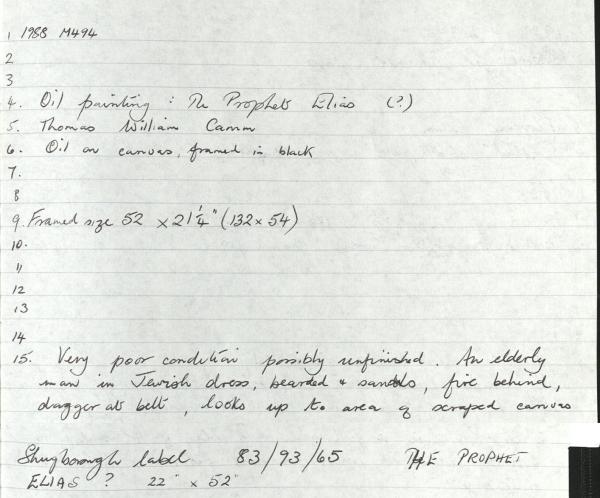 1 1988 M494
2
3
4. Oil painting : The Prophet Elias (?)
5. Thomas William Camm
6. Oil on canvas, framed in black
7.
8
9. Framed size 52 x 21 1/4" (132 x 54)
10.
11
12
13
14
15. Very poor condition possibly unfinished. An elderly
man in Jewish dress, bearded & sandals, fire behind,
dagger at belt, looks up to area of scraped canvas
Shugborough label 83/93/65 THE PROPHET
ELIAS ? 22" x 52"